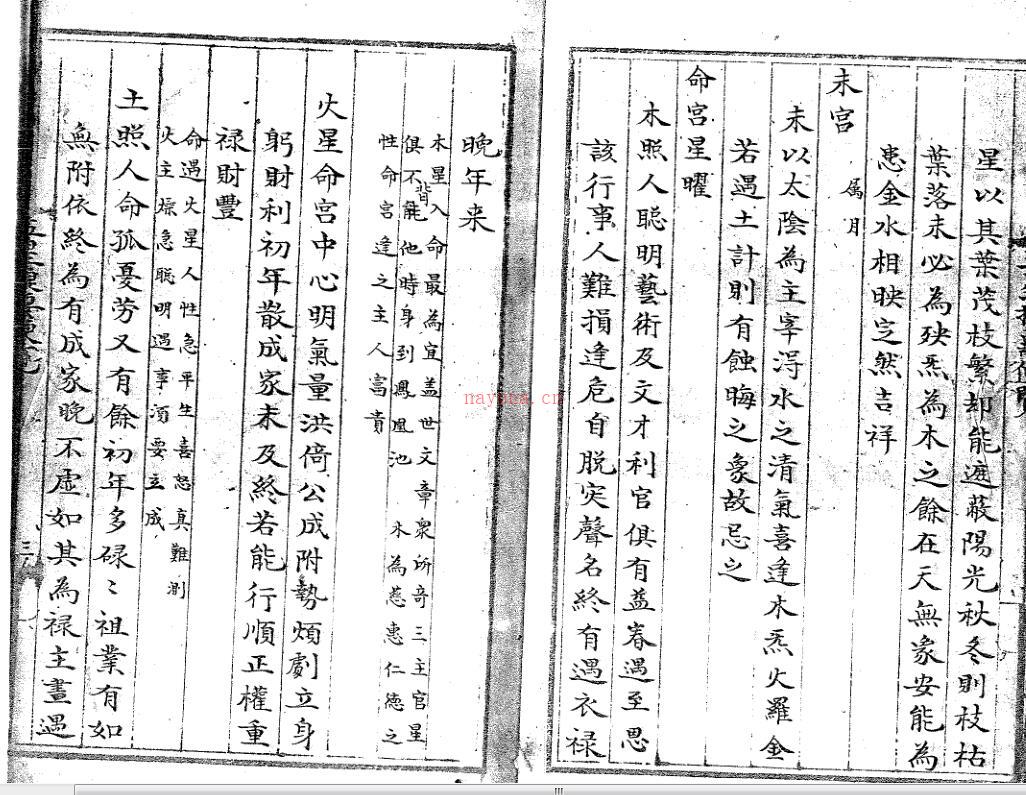 星以其葉茂枝繁却能遮蔽陽光秋冬則枝枯
葉落未必為殃炁為木之餘在天無象安能為
患金水相映定然吉祥
未宮 属月
未以太陰為主宰淂水之清氣喜逢木炁火羅金
若遇土計則有蝕晦之象故忌之
命宮星曜
木照人聡明藝術及文才利官俱有益春遇至恩
該行事人難損逢危自脱突聲名終有遇衣禄
晚年来
木星入命最為宜盖世文章衆所奇三主官星
俱不能背他時身到鳳凰池 木為慈惠仁德之
性命宮逢之主人富貴
火星命宮中心明氣量洪倚公成附勢煩劇立身
躬財利初年散成家未及終若能行順正權重
禄財豐
命遇火星人性急平生喜怒真難測
火主燥急聡明遇事湏要立成
土照人命孤憂勞又有餘初年多碌〻祖業有如
無附依終為有成家晚不虛如其為禄主晝遇
三
nayona.cn